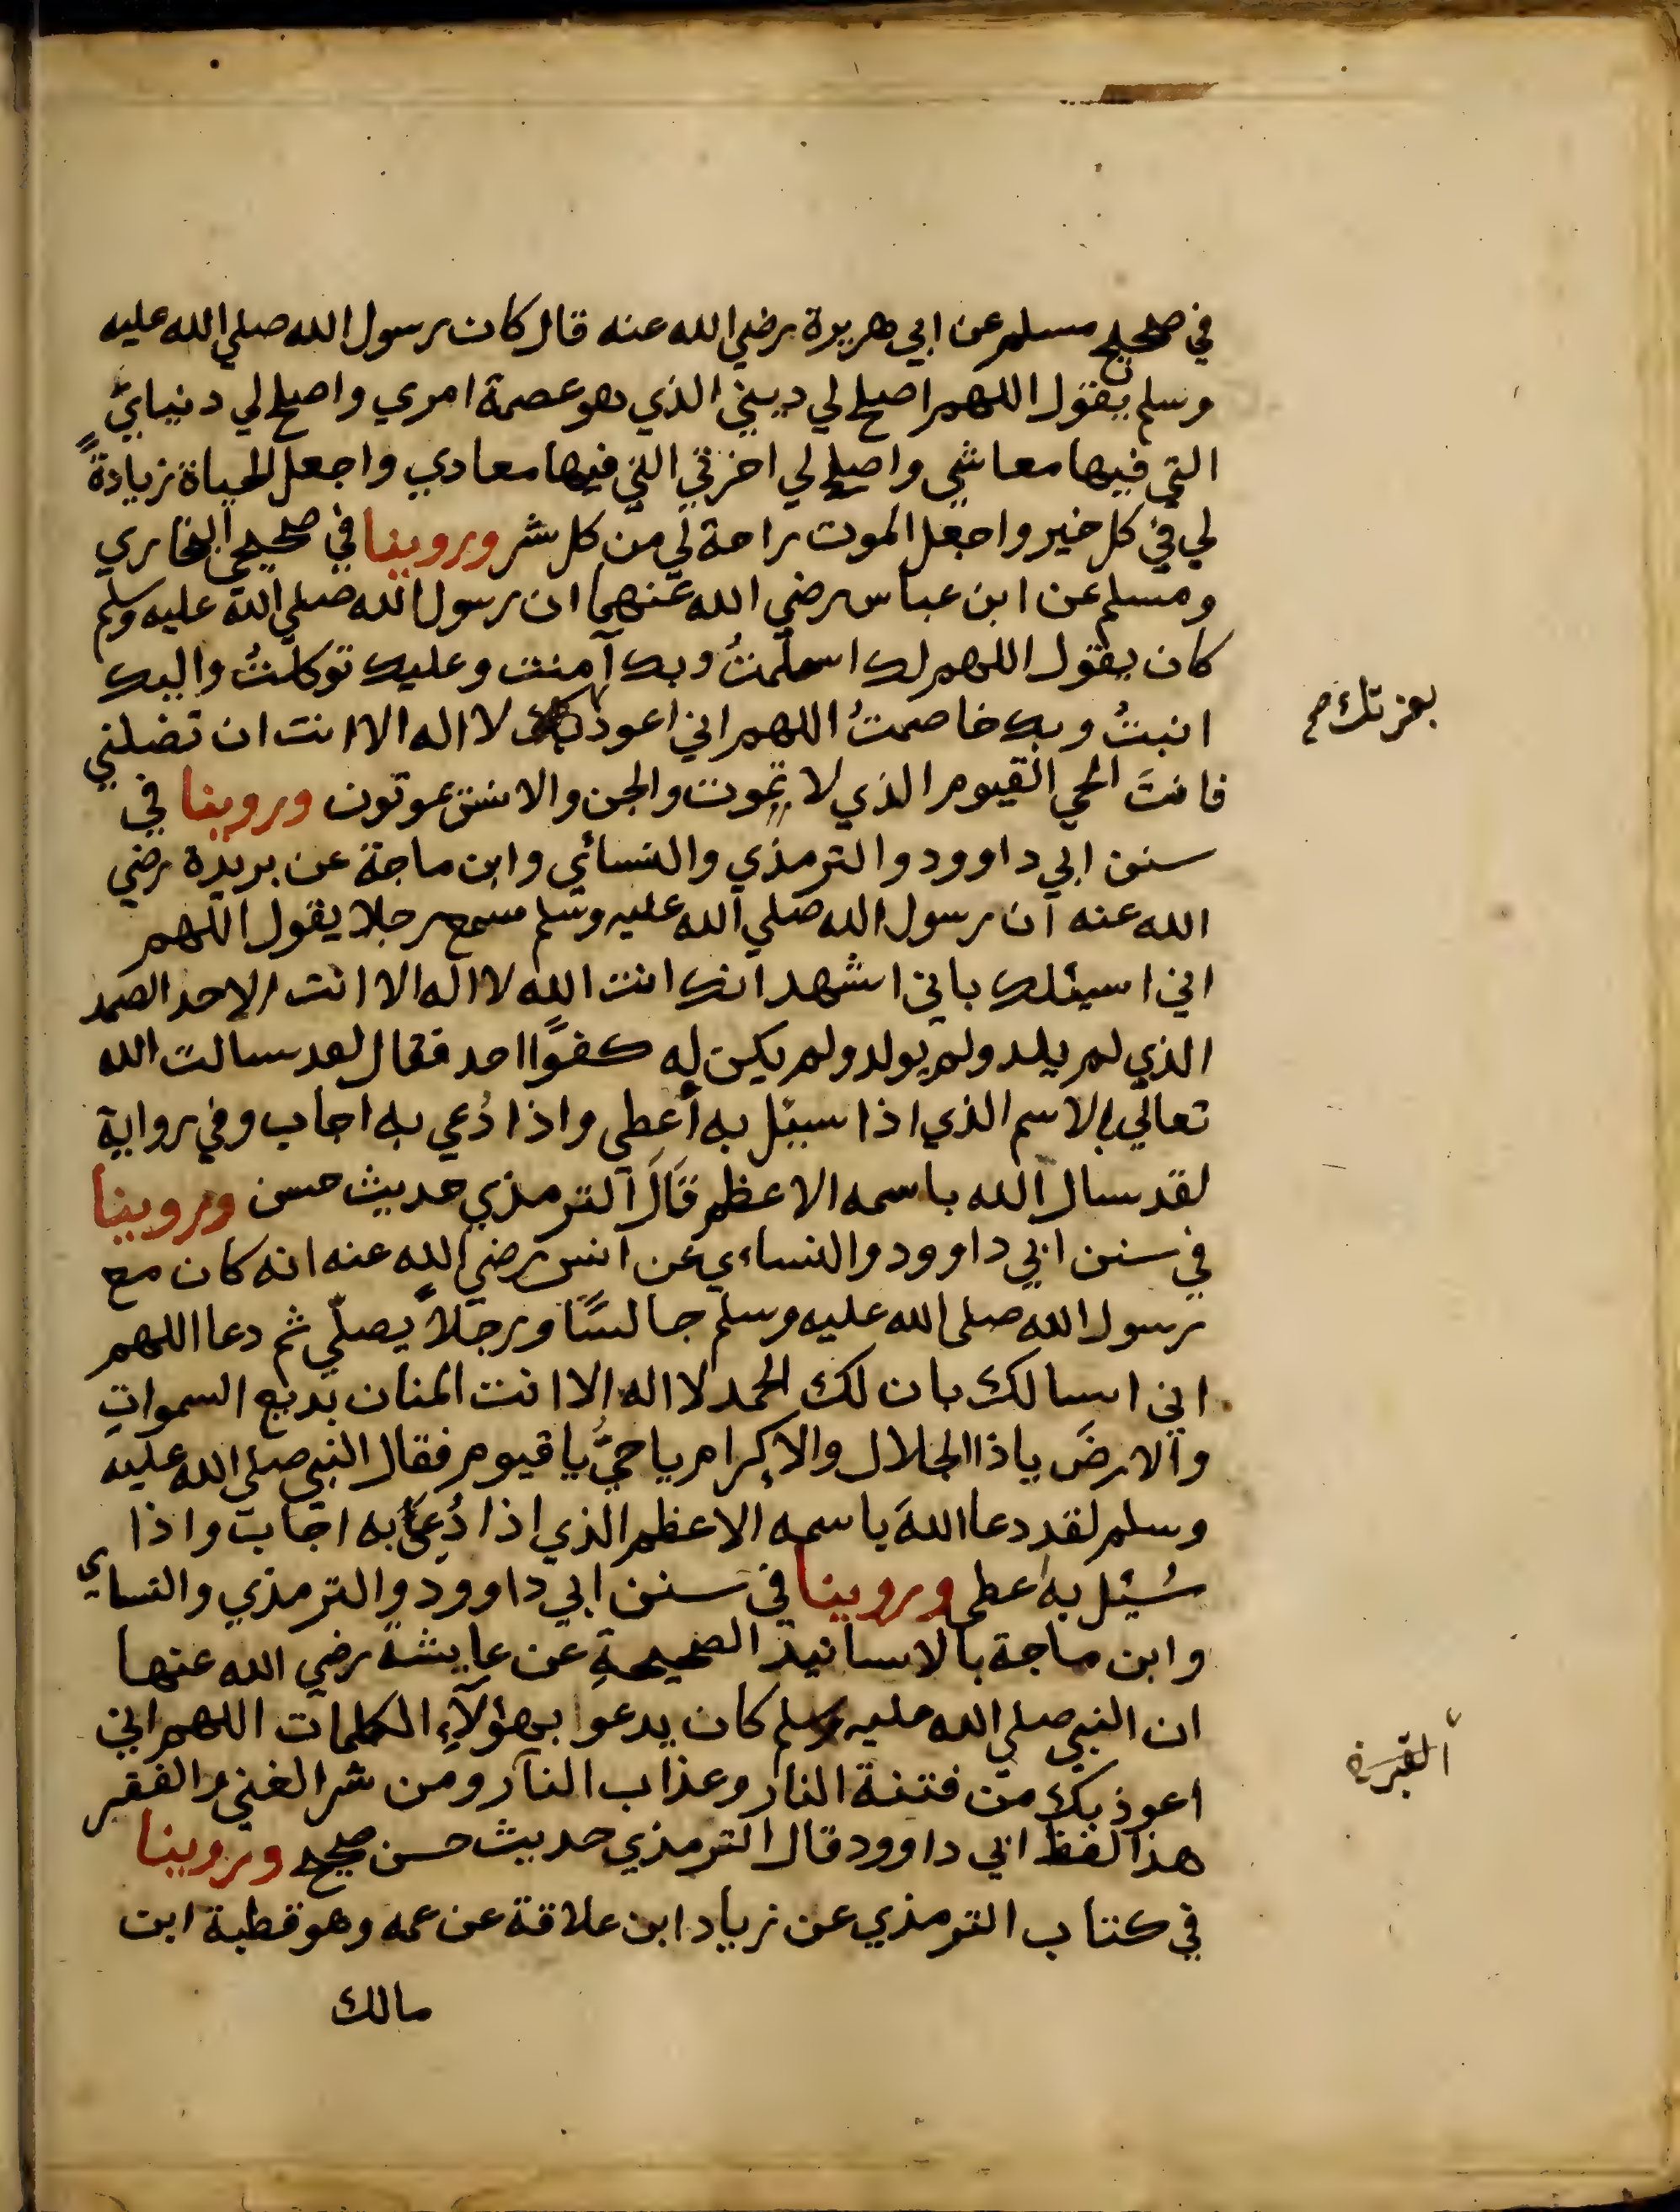 في صحيح مسلم عن ابي هريرة رضي الله عنه قال كان رسول الله صلي الله عليه
وسلم يقول اللهم اصلح لي ديني الذي هو عصمة امري واصلح لي دنياي
التي فيها معاشي واصلح لي اخرتي التي فيها معادي واجعل الحياة زيادةً
لي في كل خير واجعل الموت راحة لي من كل شر وروينا في صحيحي البخاري
ومسلم عن ابن عباس رضي الله عنهما ان رسول الله صلي الله عليه وسلم
كان يقول اللهم لك اسلمتُ وبك آمنت وعليك توكلتُ واليك
انبتُ وبك خاصمتُ اللهم اني اعوذ لا اله الا انت ان تضلني
بعزتك صح
فانتَ الحي القيوم الذي لا تموت والجن والانس يموتون وروينا في
سنن ابي داوود والترمذي والنسائي وابن ماجة عن بريدة رضي
الله عنه ان رسول الله صلي الله عليه وسلم سمع رجلا يقول اللهم
اني اسيئلك باني اشهد انك انت الله لا اله الا انت الاحد الصمد
الذي لم يلد ولم يولد ولم يكن له كفوًا احد فقال لقد سالت الله
تعالي بالاسم الذي اذا سيئل به أعطي واذا دُعي به اجاب وفي رواية
لقد سال الله باسمه الاعظم قَالَ الترمذي حديث حسن وروينا
في سنن ابي داوود والنساءي عن انس رضي الله عنه انه كان مع
رسول الله صلى الله عليه وسلم جالسًا ورجلاً يصلّي ثم دعا اللهم
اني اسالك بان لك الحمد لا اله الا انت المنان بديع السمواتِ
والارضَ ياذا الجلال والاكرام يا حيُّ يا قيوم فقال النبي صلي الله عليه
وسلم لقد دعا اللهَ باسمه الاعظم الذي إذا دُعِيَ به اجاب واذا
سُئيل به اعطى وروينا في سنن ابي داوود والترمذي والنساي
وابن ماجة بالاسانيد الصحيحةِ عن عايشة رضي الله عنها
ان النبي صلي الله عليه وسلم كان يدعوا بهؤلآءِ الكلمات اللهم اني
اعوذ بك من فتنة النار وعذاب النار ومن شر الغني والفقر
هذا لفظ ابي داوود قال الترمذي حديث حسن صحيح وروينا
في كتاب الترمذي عن زياد ابن علاقة عن عمه وهو قطبة ابن
مالك